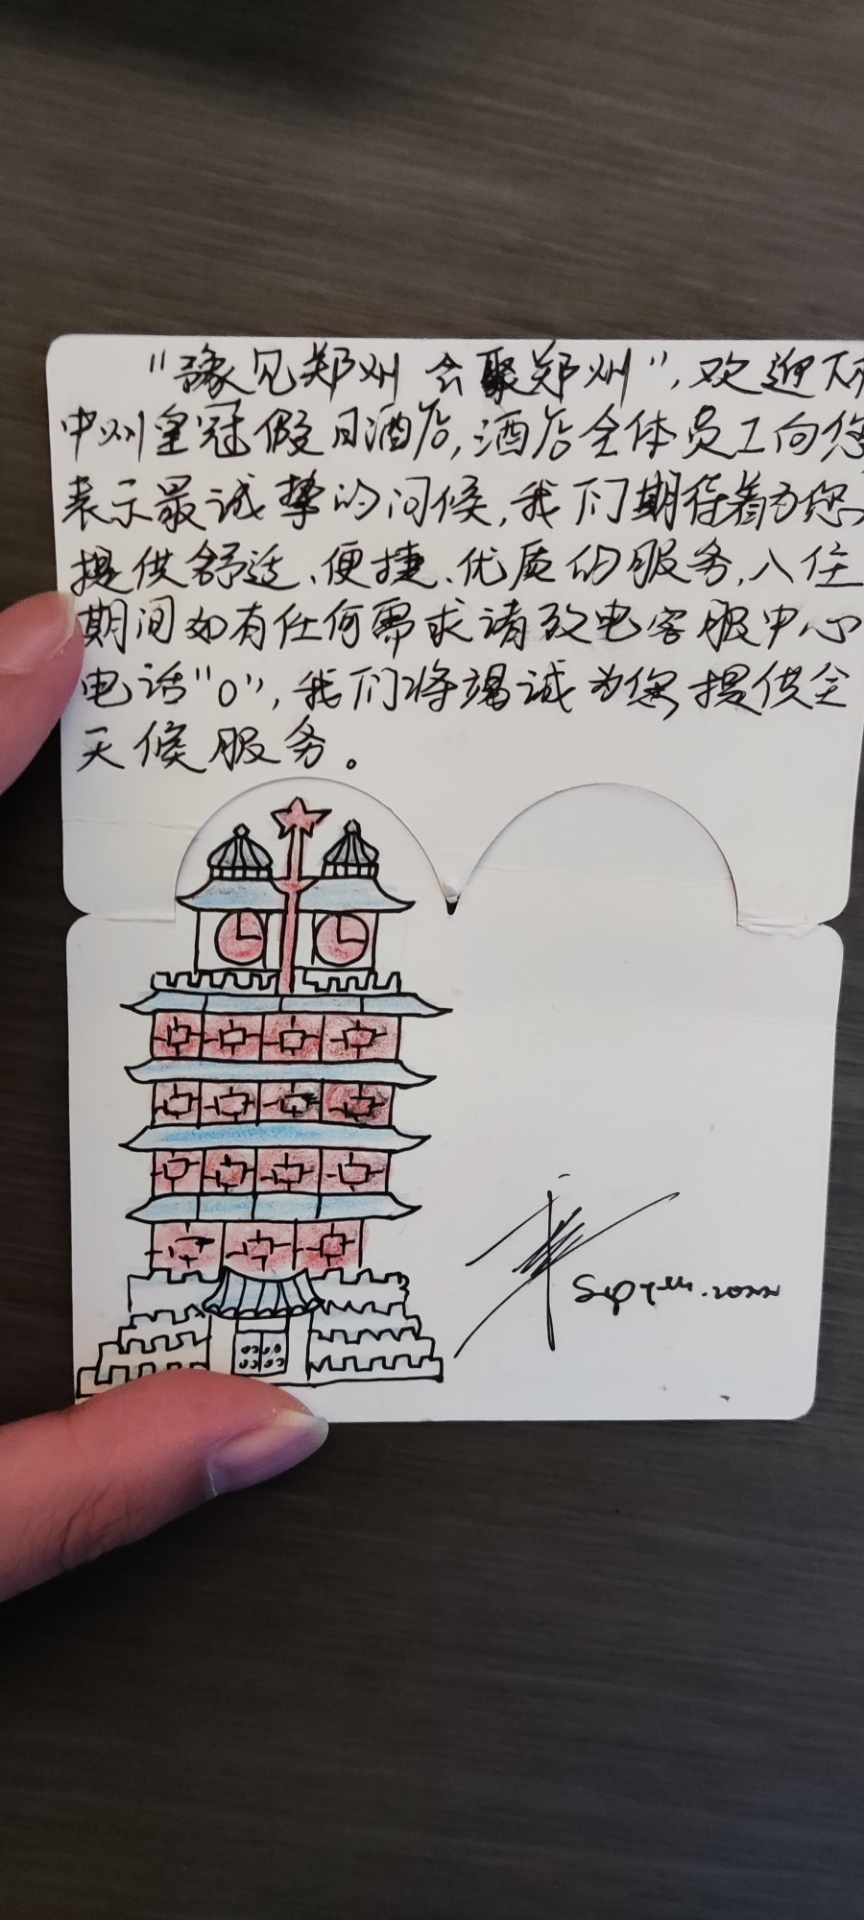 "豫见郑州 会聚郑州",欢迎下
中州皇冠假日酒店,酒店全体员工向您
表示最诚挚的问候,我们期待着为您
提供舒适、便捷、优质的服务,入住
期间如有任何需求请致电客服中心
电话"0",我们将竭诚为您提供全
天候服务。
Sep 7th. 2022